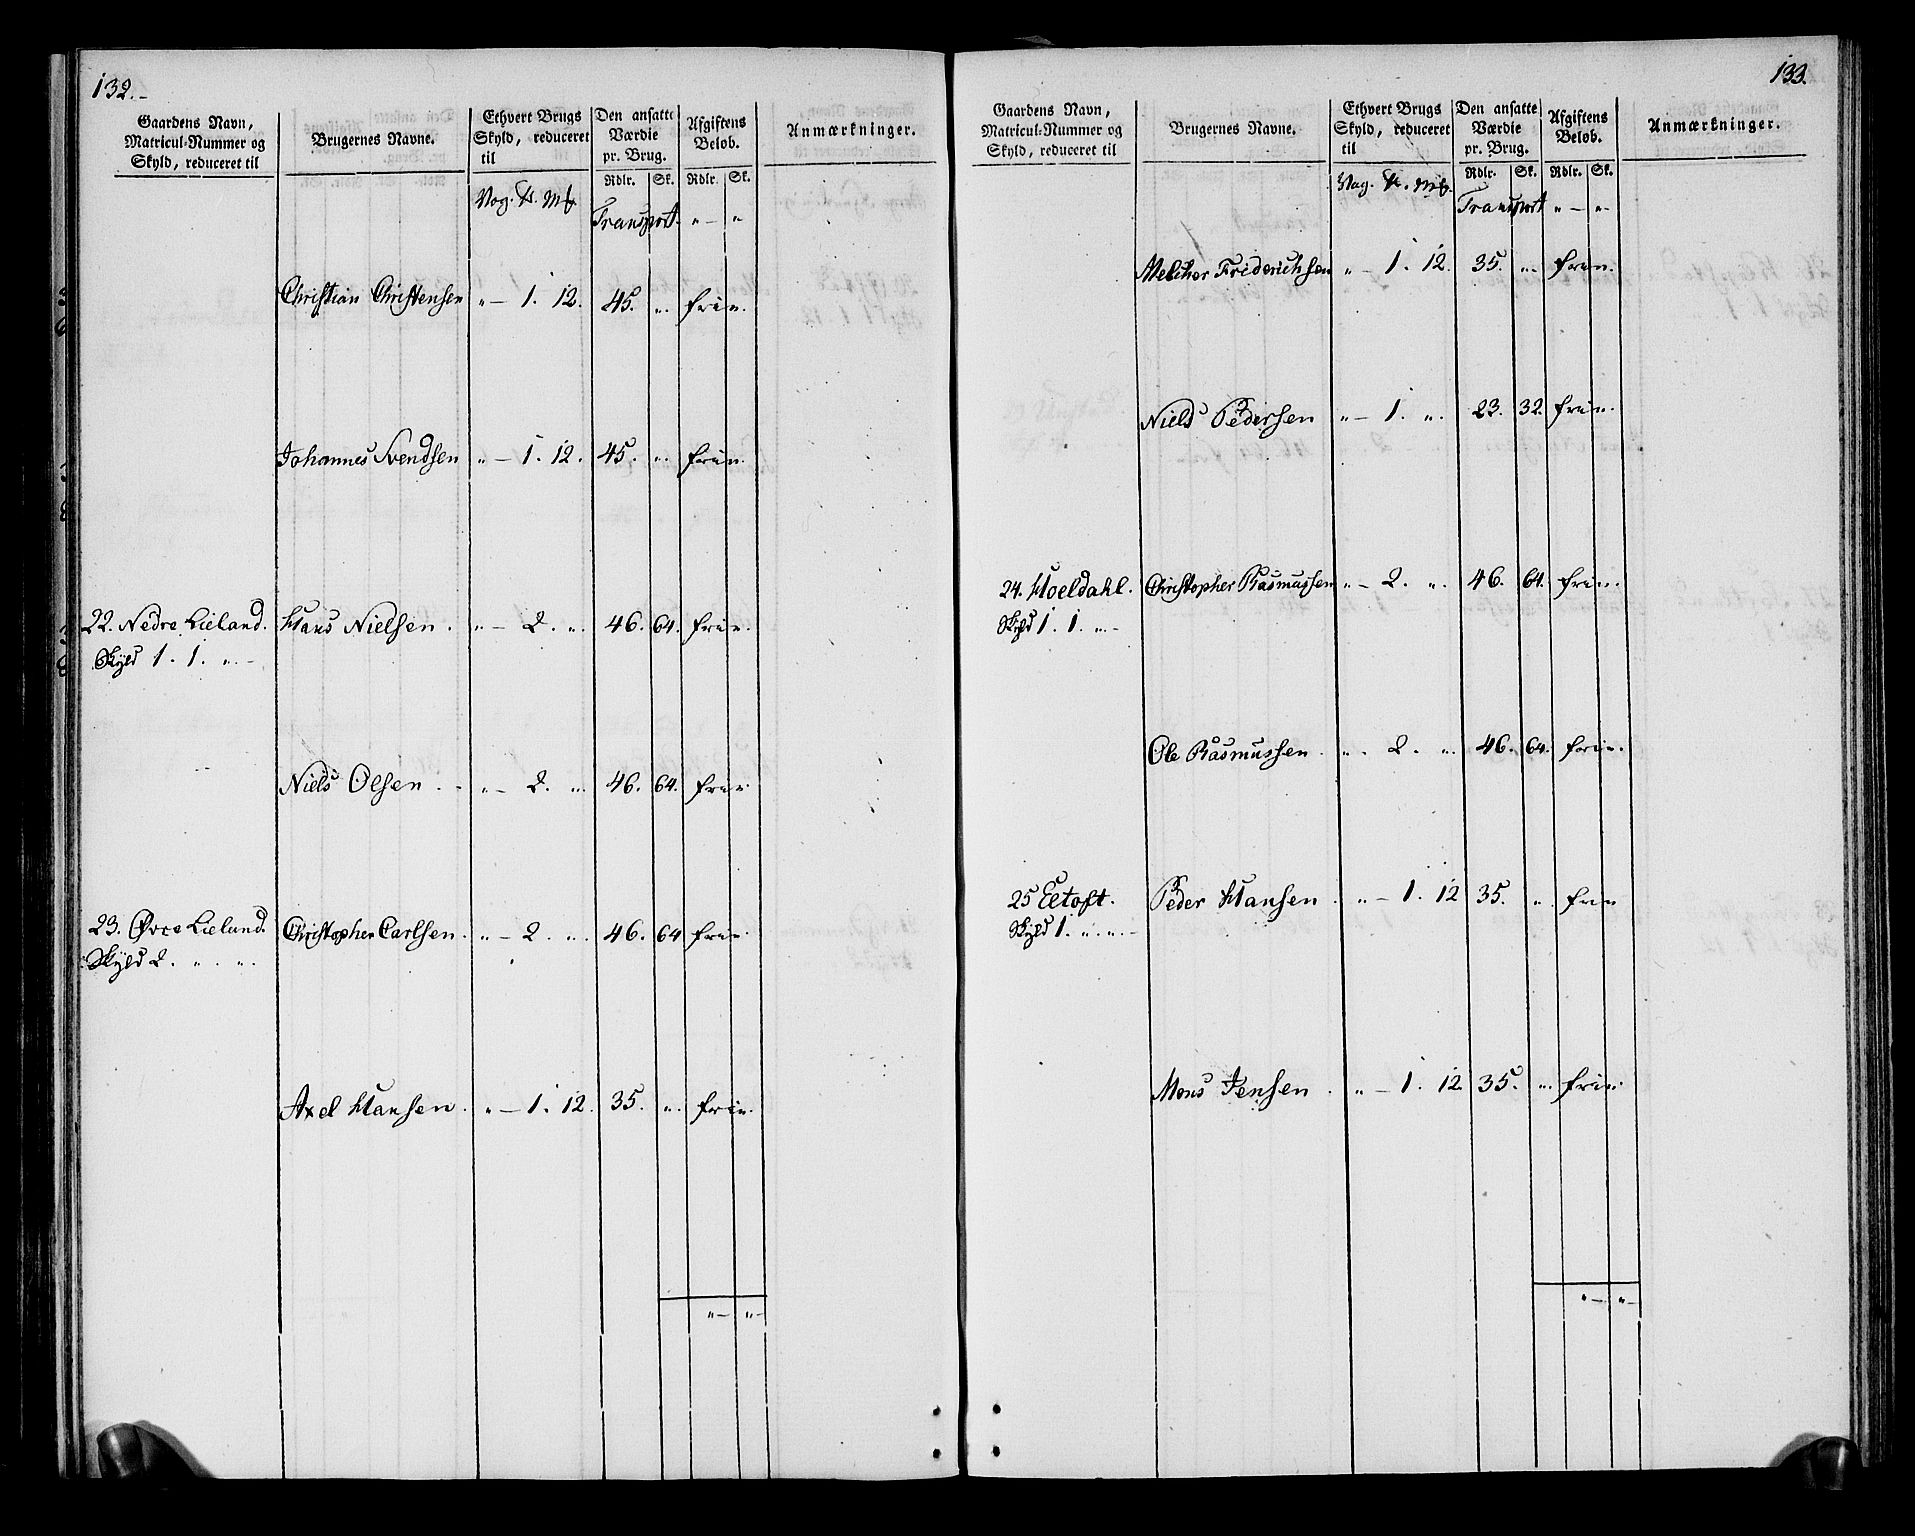 132.
Gaardens Navn, Matricul-Nummer og Skyld, reduceret til
Brugernes Navne.
Ethvert Brugs Skyld, reduceret til
Den ansatte Værdie pr. Brug.
Afgiftens Beløb.
Anmærkninger.
Rdlr. Sk. Rdlr. Sk.
Vog. ℔. Mk
Transport. " — "
Christian Christensen " — 1. 12. 45. " frie.
Johannes Svendsen " — 1. 12. 45. " frie.
22. Nedre Lieland. Hans Nielsen. " — 2. " 46. 64. frie.
Skyld 1. 1. " —
Niels Olsen. " — 2. " 46. 64. frie
23. Øvre Lieland. Christopher Carlsen. " — 2. " 46. 64 frie.
Skyld 2. " "
Axel Hansen. " — 1. 12. 35. " frie.
" — " —
133.
Gaardens Navn, Matricul-Nummer og Skyld, reduceret til
Brugernes Navne.
Ethvert Brugs Skyld, reduceret til
Den ansatte Værdie pr. Brug.
Afgiftens Beløb.
Anmærkninger.
Rdlr. Sk. Rdlr. Sk.
Vog. ℔. Mk.
Transport " — "
Melchor Friderichsen " — 1. 12. 35. " frie.
Niels Pedersen " — 1. " 23. 32. frie.
24. Hoeldahl. Christopher Rasmussen " — 2. " 46. 64. frie.
Skyld 1. 1. " —
Ole Rasmussen. " 2. " 46. 64. frie.
25 Eetoft. Peder Hansen. " — 1. 12 35. " frie
Skyld 1. " " —
Mons Jensen. " — 1. 12 35. " frie.
" — " —